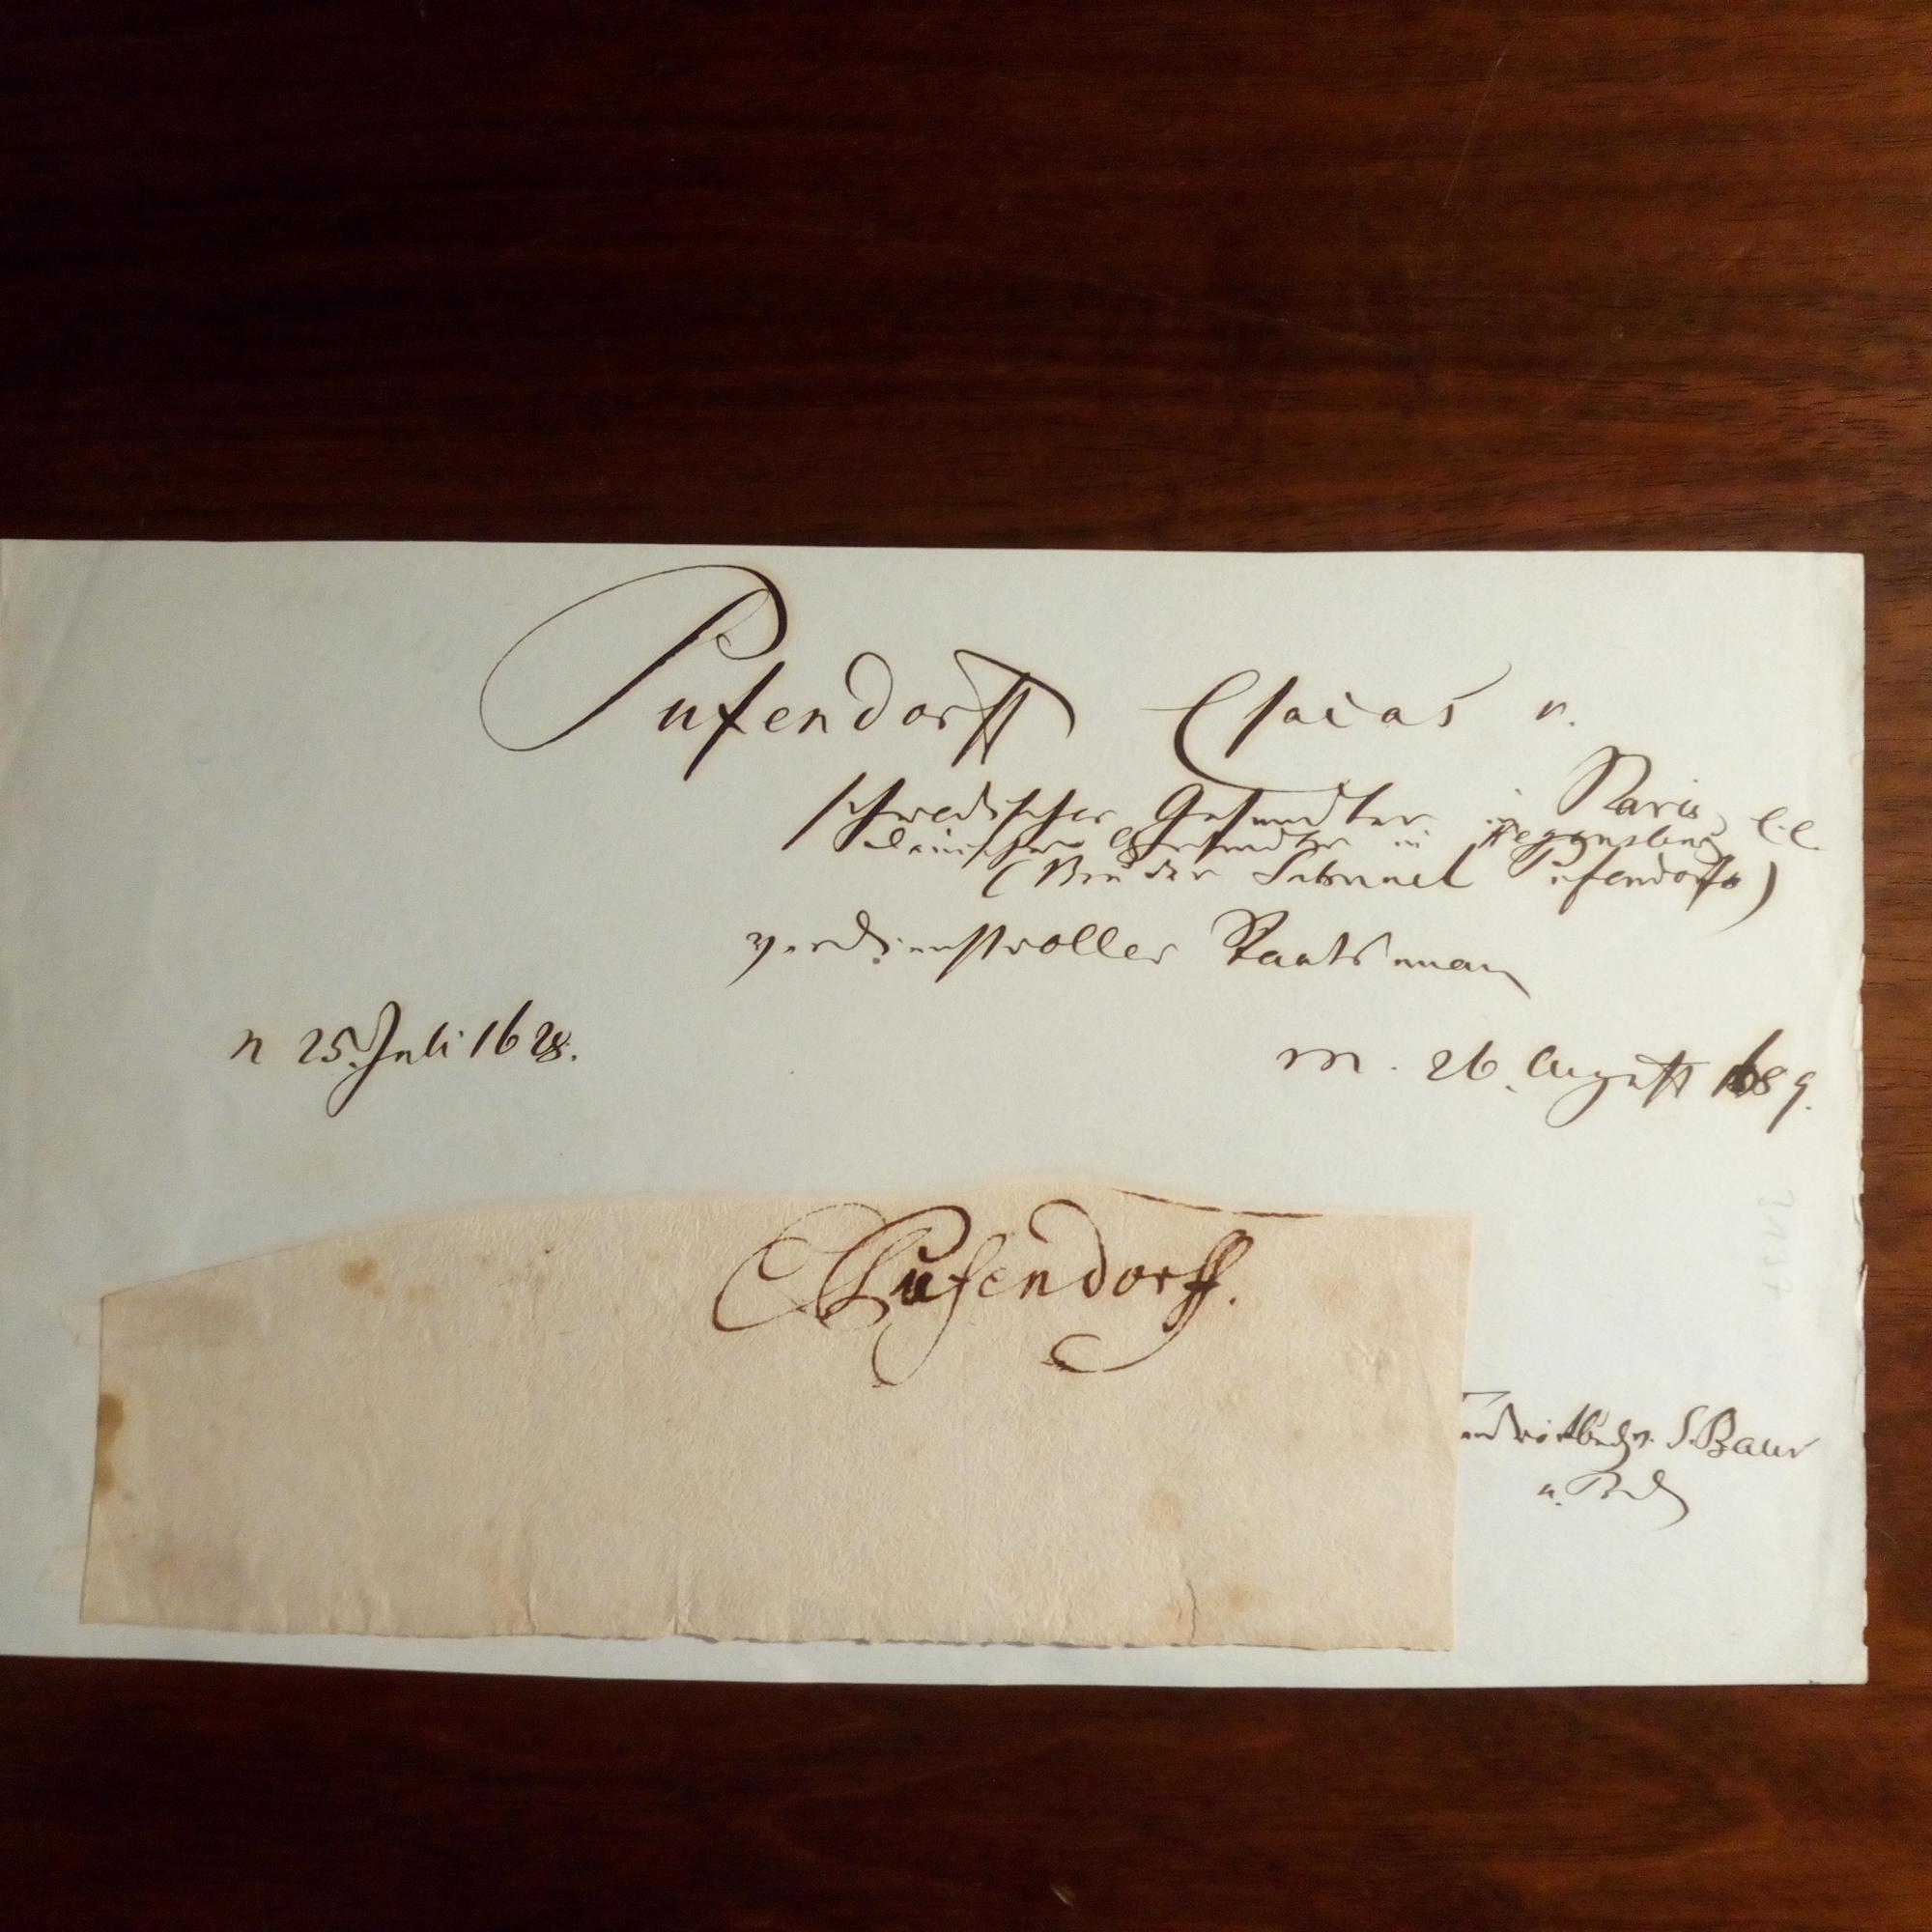 Pufendorff Esaias v.
schwedischer Gesandter in Paris,
dänischer Gesandter in Regensburg
(Bruder Samuel Pufendorfs)
verdienstvoller Staatsman
n 25. Juli 1628.
m. 26. August 1689.
EPufendorff.
S. Baur
u.